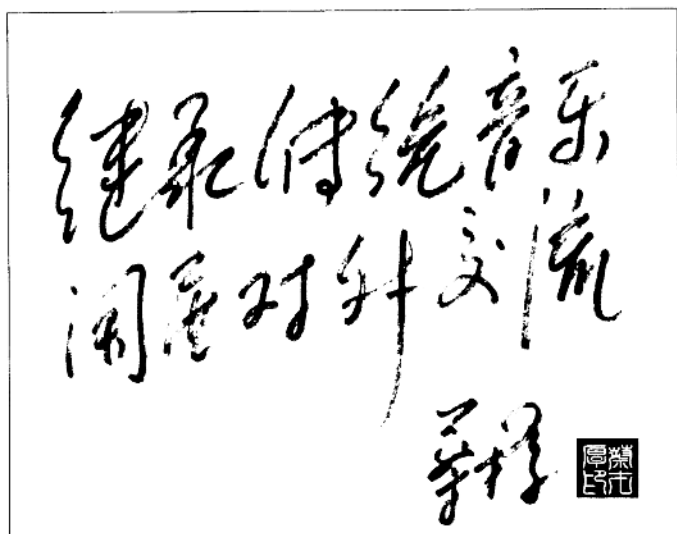 继承傳统音乐
開展对外交流